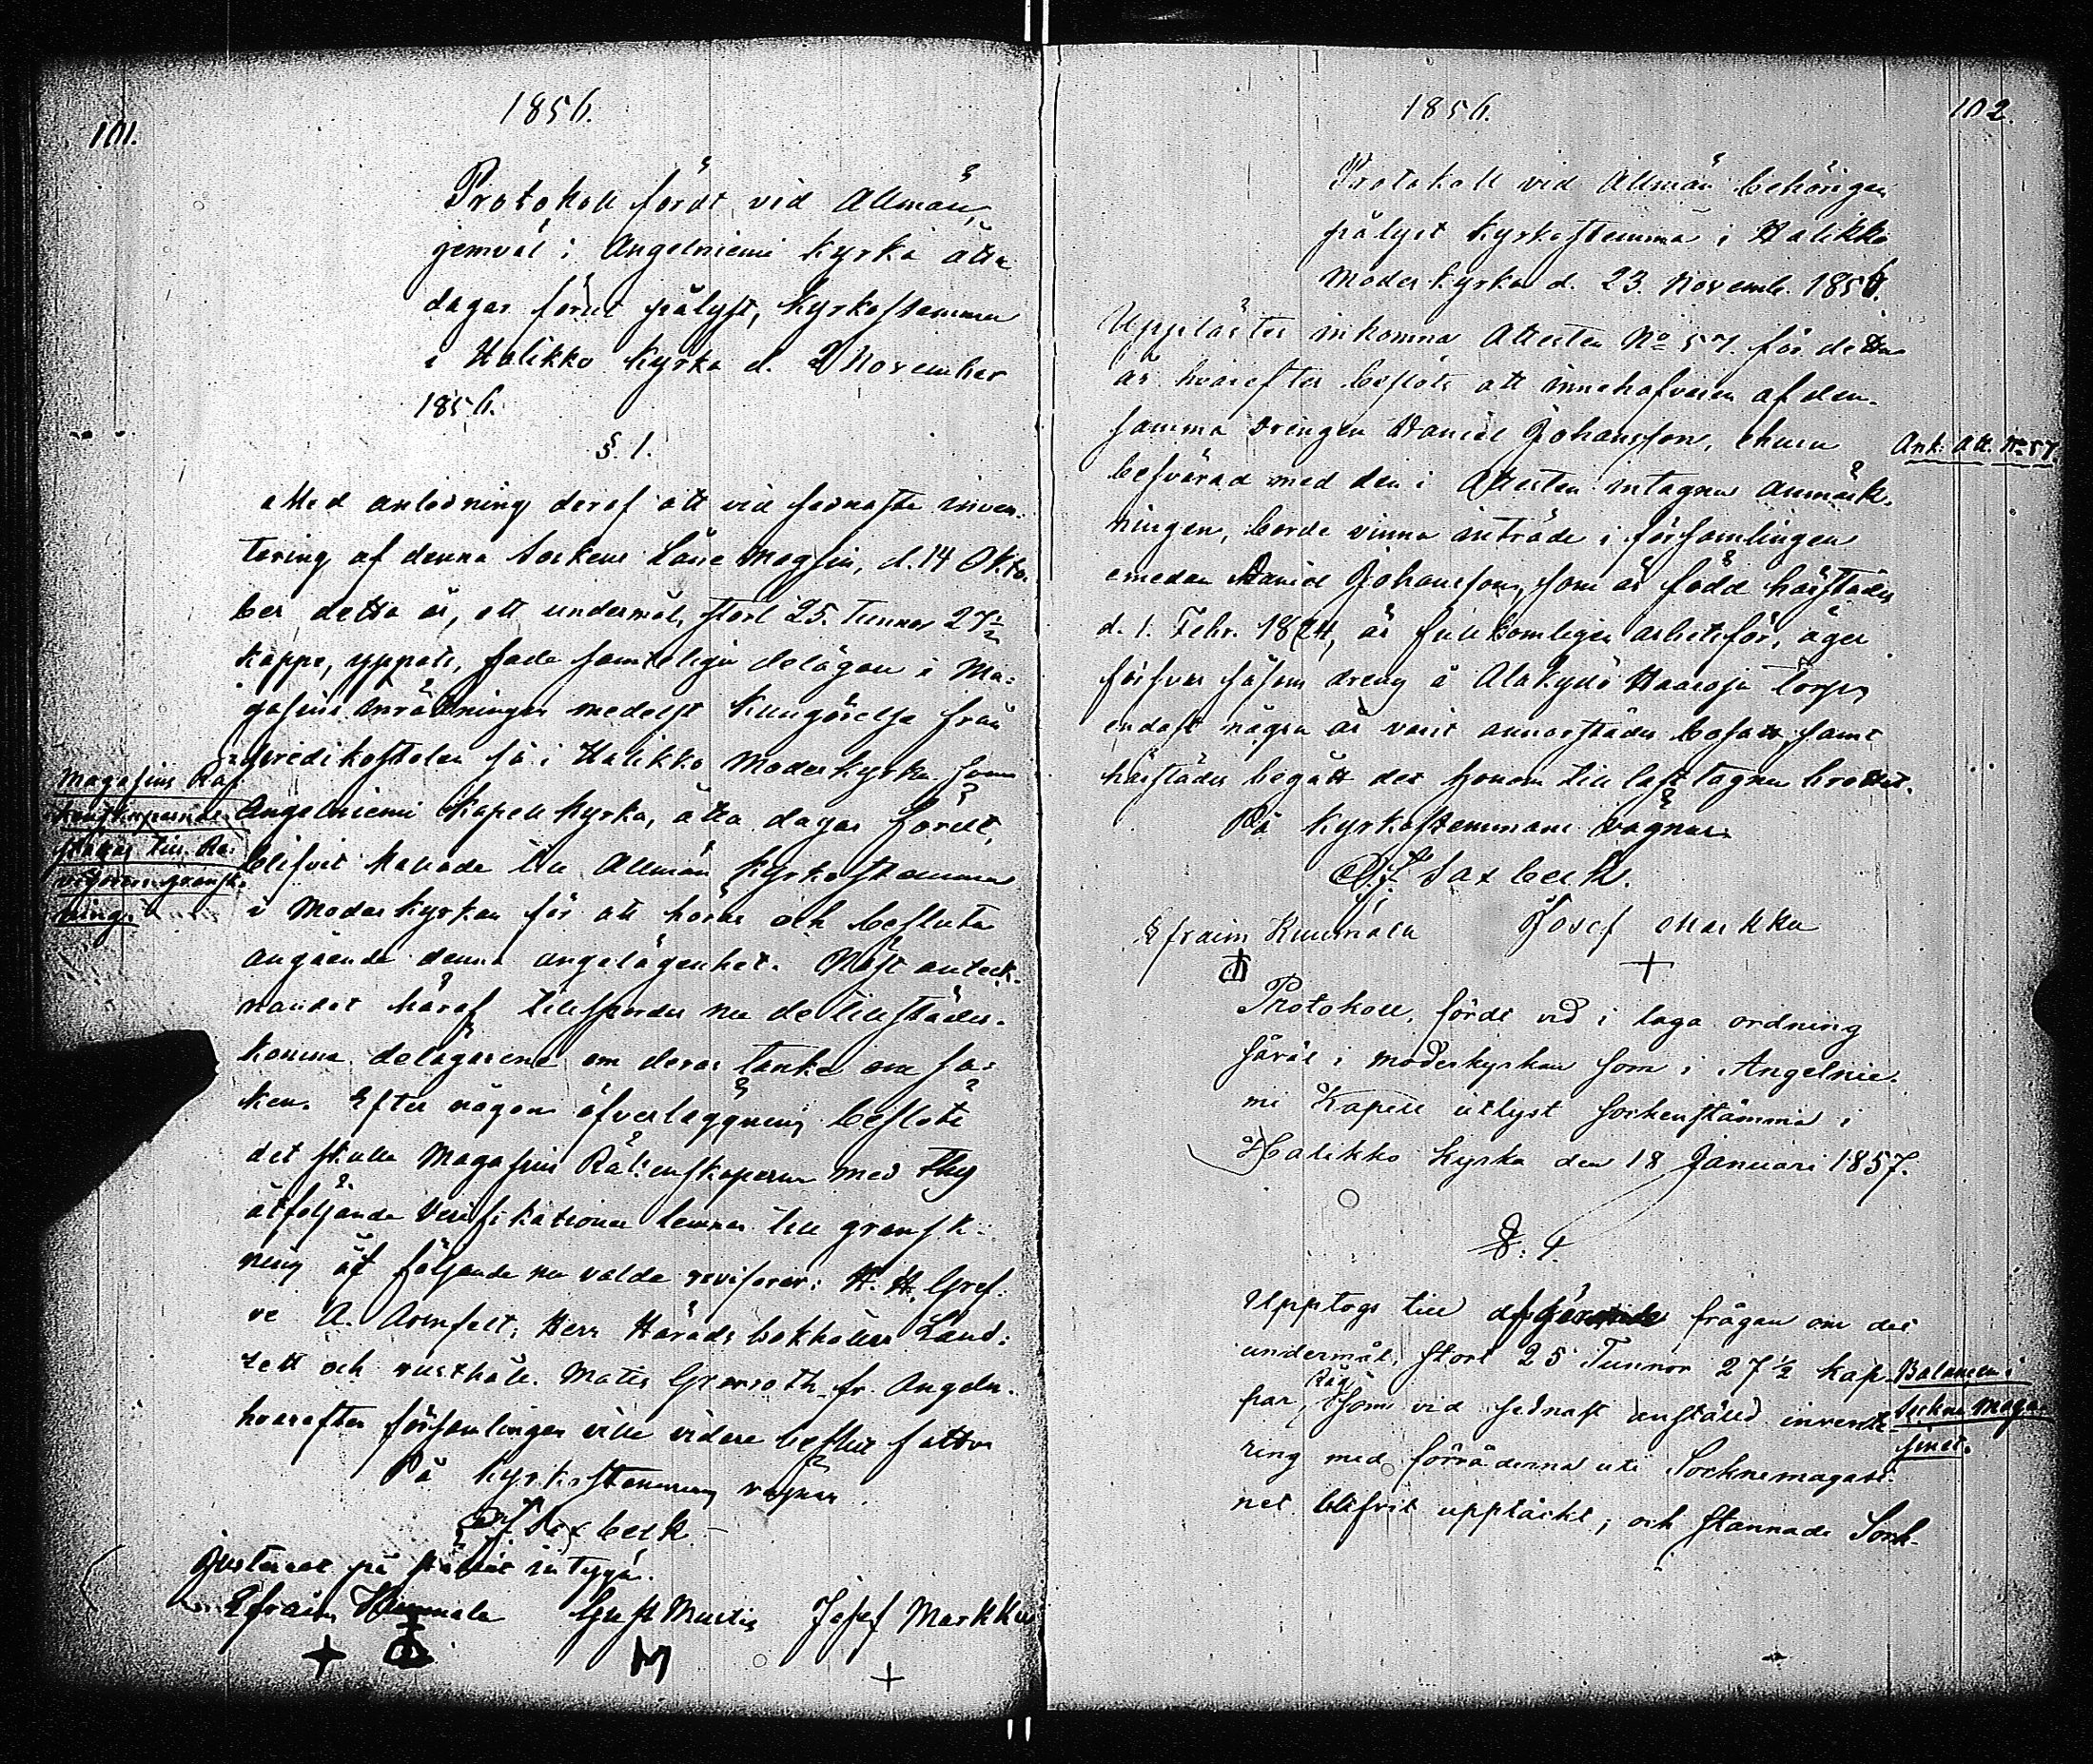 1856.
101.
Protokoll fördt vid Allmän,
jemväl i Angelniemi Kyrka åtta
dagar förut pålyst, Kyrkostämma
i Halikko Kyrka d. 2 November
1856.
§. 1.
Med anledning deraf att vid sednaste inven-
tering af denna Sockens Låne Magasin, d. 14 Okto-
ber detta år, ett undermål, stort 25. Tunnor 27½
kappe, yppats, hade samtelige delägare i Ma-
gasins Inrättningen medelst Kungörelse från
Predikostolen så i Halikko Moderkyrka som
Angelniemi Kapell kyrka, åtta dagar förut,
blifvit kallade till Allmän Kyrkostämma
i Moderkyrkan för att höras och besluta
angående denna angelägenhet. Näst anteck-
nandet häraf tillspordes nu de tillstädes-
komna delägarene om deras tanke om sa-
ken. Efter någon öfverläggning beslöts
det skulle Magasins Räkenskaperna med thy
åtföljande Verifikationer lemnas till gransk-
ning af följande nu valde revisorer: H. H. Gref-
ve A. Armfelt, Herr Härads bokhållare Land-
zett och rusthåll. Matts Grenroth fr. Angeln.
hvarefter församlingen ville vidare beslut fatta
På Kyrkostämmans vägnar
Saxbeck.
Justerat på stället intyga.
Efraim Kuumala Gust Mustis Josef Markku
M
Magasins Räk-
enskaperna
till Re-
visorers gransk-
ning.
1856.
102.
Protokoll vid Allmän behörigen
pålyst Kyrkostämma i Halikko
Moderkyrka d. 23. Novemb. 1856.
Upplästes inkomna Attesten No 57. för detta
år hvarefter beslöts att innehafvaren af den-
samma Drängen Daniel Johansson, ehuru
besvärad med den i Attesten intagna anmärk-
ningen, borde vinna inträde i församlingen
emedan Daniel Johansson, som är född härstädes
d. 1. Febr. 1824, är fullkomligen arbetsför, äger
försvar såsom dreng å Alakylä Haaroja Torp,
endast några år varit annorstädes bosatt, samt
härstädes begått det honom till last lagna brottet.
På Kyrkostemmans vägnar
Saxbeck.
Efraim Kuumala Josef Markku
Ank. Att. No 57.
Protokoll, fördt vid i laga ordning
såväl i moderkyrkan som i Angelnie-
mi Kapell utlyst sockenstämma i
Halikko Kyrka den 18 Januari 1857.
§. 1.
Upptogs till afgörande frågan om det
undermål, stort 25 Tunnor 27½ kap-
par, Råg, som vid sednast anstäld invente-
ring med förråderna uti Socknemagasi-
net blifvit upptäckt; och stannade Sock-
Balancen i
Sockne Maga-
sinet.